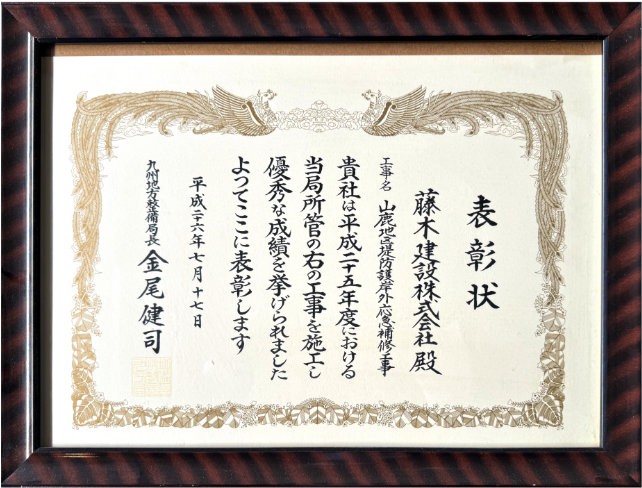 表彰状
藤木建設株式会社 殿
工事名 山鹿地区堤防護岸外応急補修工事
貴社は平成二十五年度における
当局所管の右の工事を施工し
優秀な成績を挙げられました
よってここに表彰します
平成二十六年七月十七日
九州地方整備局長 金尾健司